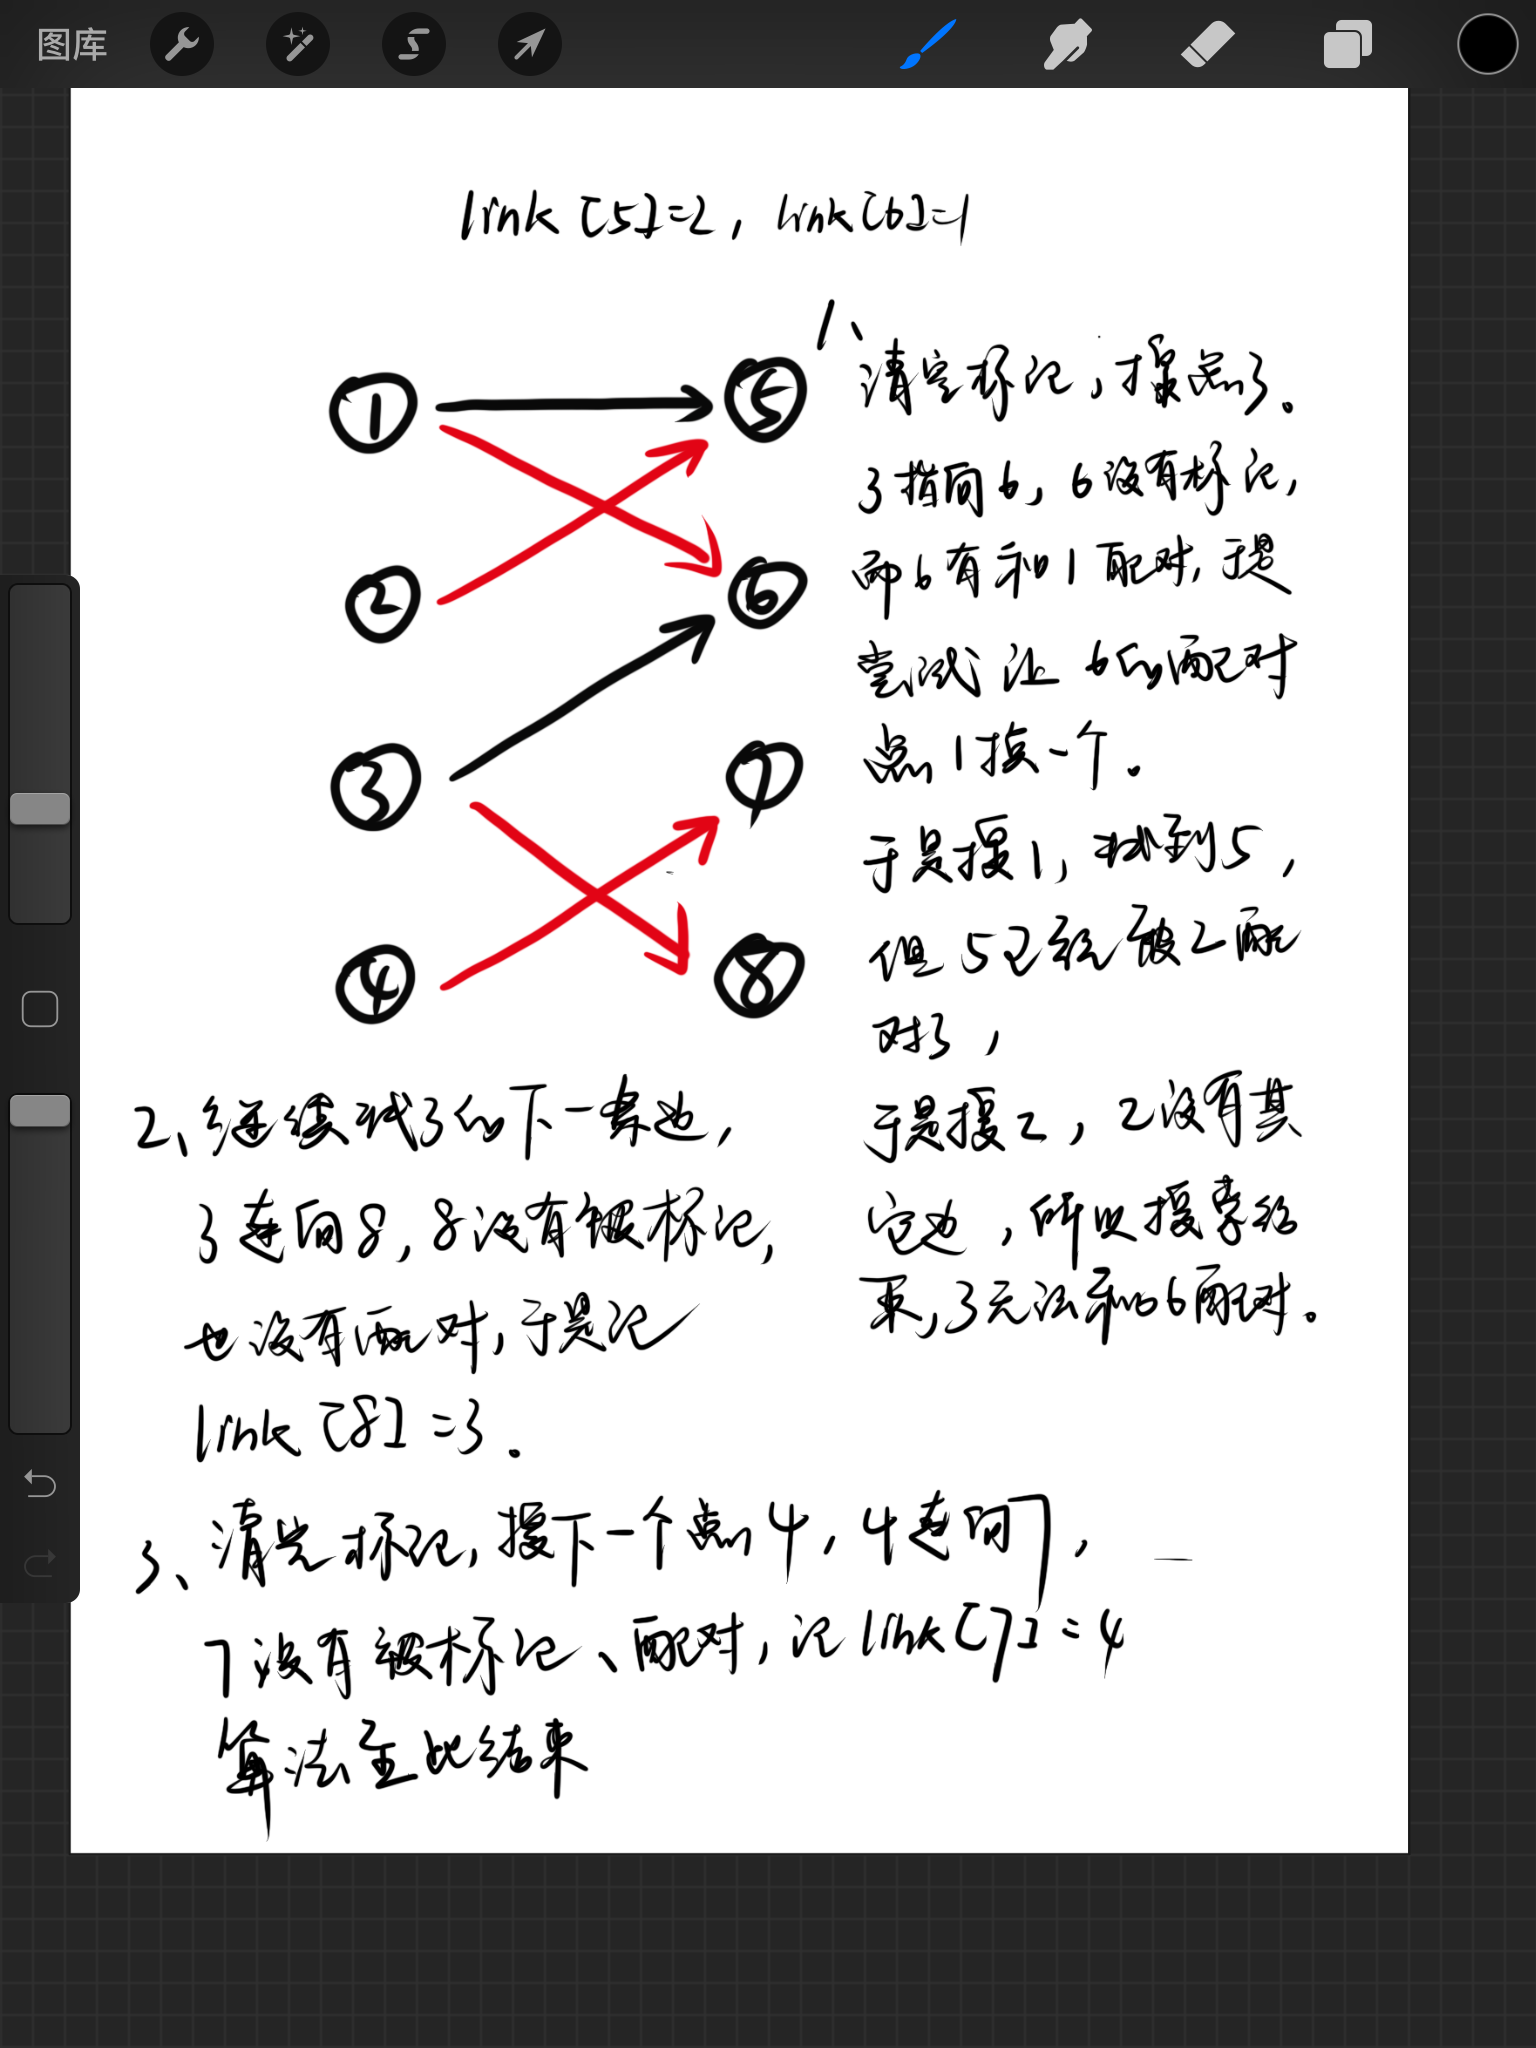 图库
link[5]=2,link[6]=1
1
5
2
6
3
7
4
8
1、
清空标记,搜点3。
3指向6,6没有标记,
而6有和1配对,于是
尝试让6的配对
点1换一个。
于是搜1,找到5,
但5已经被2配
对了,
于是搜2,2没有其
它边,所以搜索结
束,3无法和6配对。
2、继续找3的下一条边,
3连向8,8没有被标记,
也没有配对,于是记
link[8]=3.
3、清空标记,搜下一个点4,4连向7,
7没有被标记、配对,记link[7]=4
算法至此结束